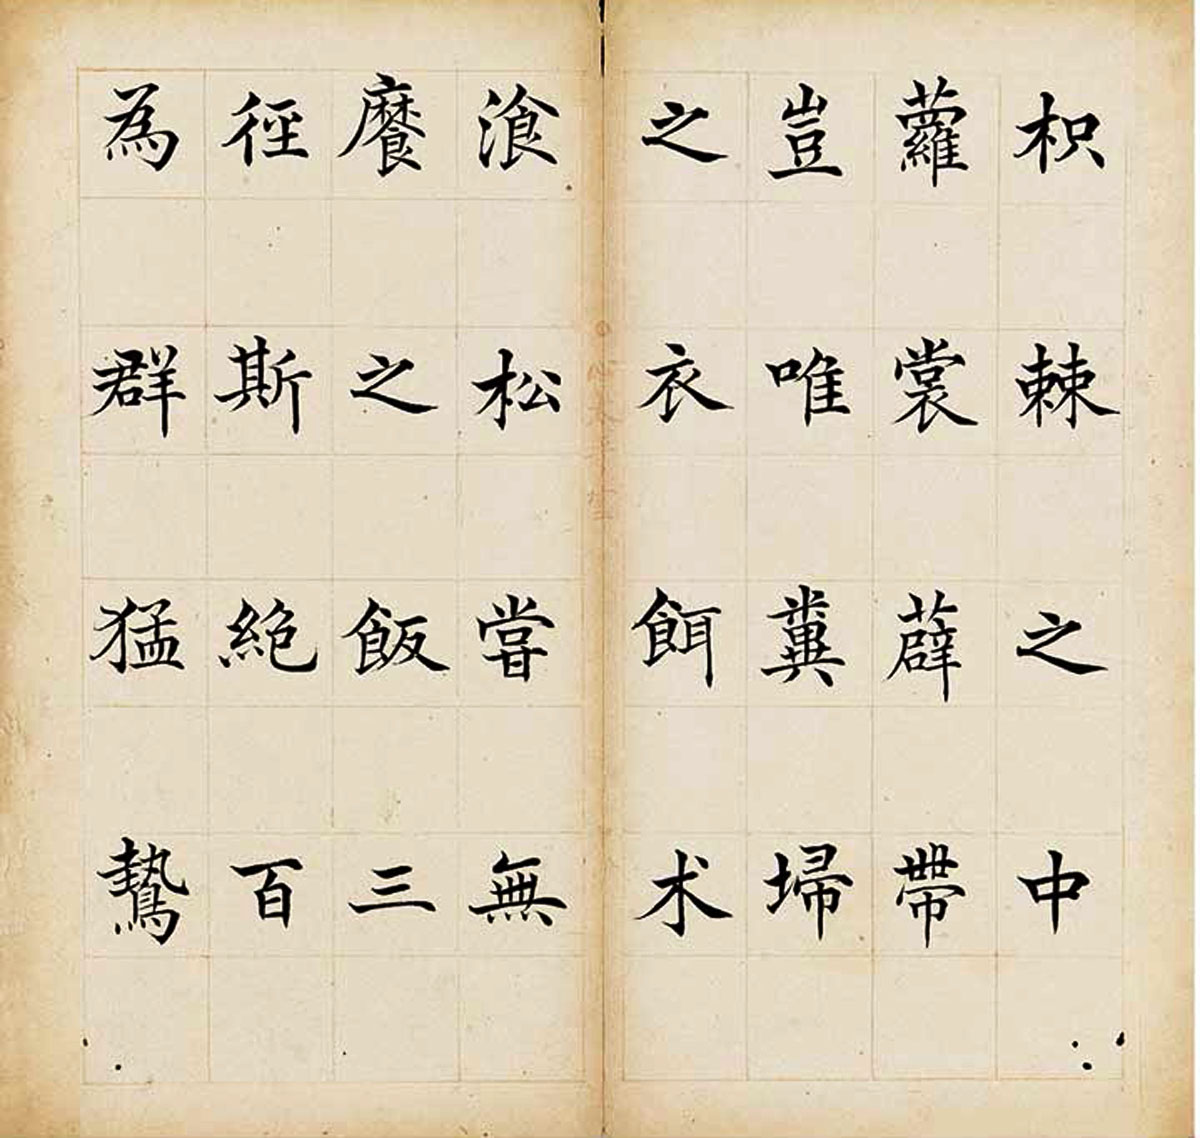 枳棘之中
蘿裳薜帶
豈唯糞埽
之衣餌术
湌松甞無
之飯三
徑斯絶百
為群猛鷙